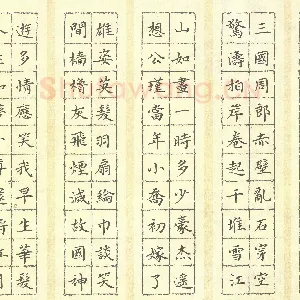 三國周郎赤壁亂石穿空
驚濤拍岸卷起千堆雪江
山如畫一時多少豪杰遙
想公瑾當年小喬初嫁了
雄姿英髮羽扇綸巾談笑
間檣櫓灰飛煙滅故國神
遊多情應笑我早生華髮